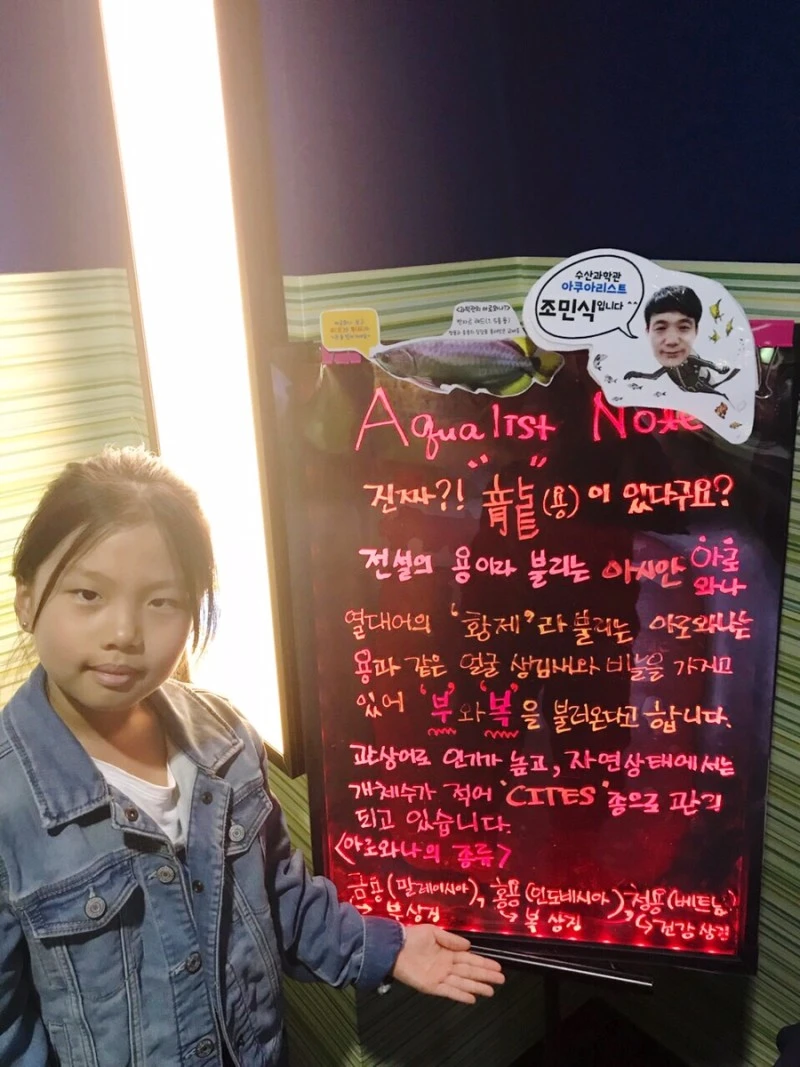 수산과학관
아쿠아리스트
조민식입니다^^
Aqualist Note
진짜?! 龍(용)이 있다구요?
전설의 용이라 불리는 아시안 아로와나
열대어의 '황제'라 불리는 아로와나는
용과 같은 얼굴 생김새와 비늘을 가지고
있어 '부'와 '복'을 불러온다고 합니다.
관상어로 인기가 높고, 자연상태에서는
개체수가 적어 "CITES"종으로 관리
되고 있습니다.
<아로와나의 종류>
금용(말레이시아), 홍용(인도네시아), 청용(베트남)
↳ 부 상징 ↳ 복 상징 ↳ 건강 상징